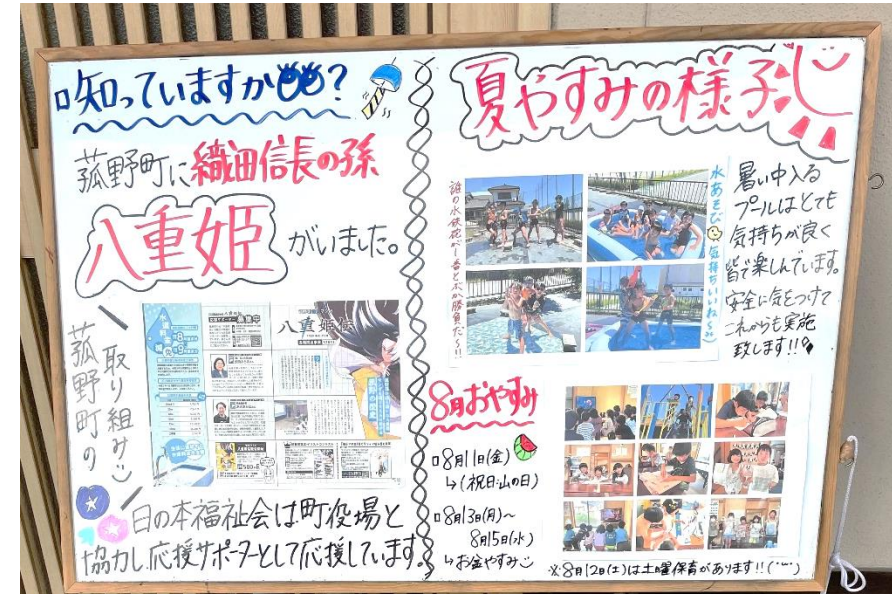 知っていますか?
菰野町に織田信長の孫
八重姫がいました。
菰野町の
取り組み
八重姫伝
日の本福祉会は町役場と
協力し応援サポーターとして応援しています。
夏やすみの様子
誰の水鉄砲が一番とぶか勝負だ〜!!
水あそび気持ちいいね〜
暑い中入る
プールはとても
気持ちが良く
皆で楽しんでいます。
安全に気をつけて
これからも実施
致します!!
8月おやすみ
8月11日(金)
↳(祝日:山の日)
8月13日(月)〜
8月15日(水)
↳お盆やすみ
※8月12日(土)は土曜保育があります!!